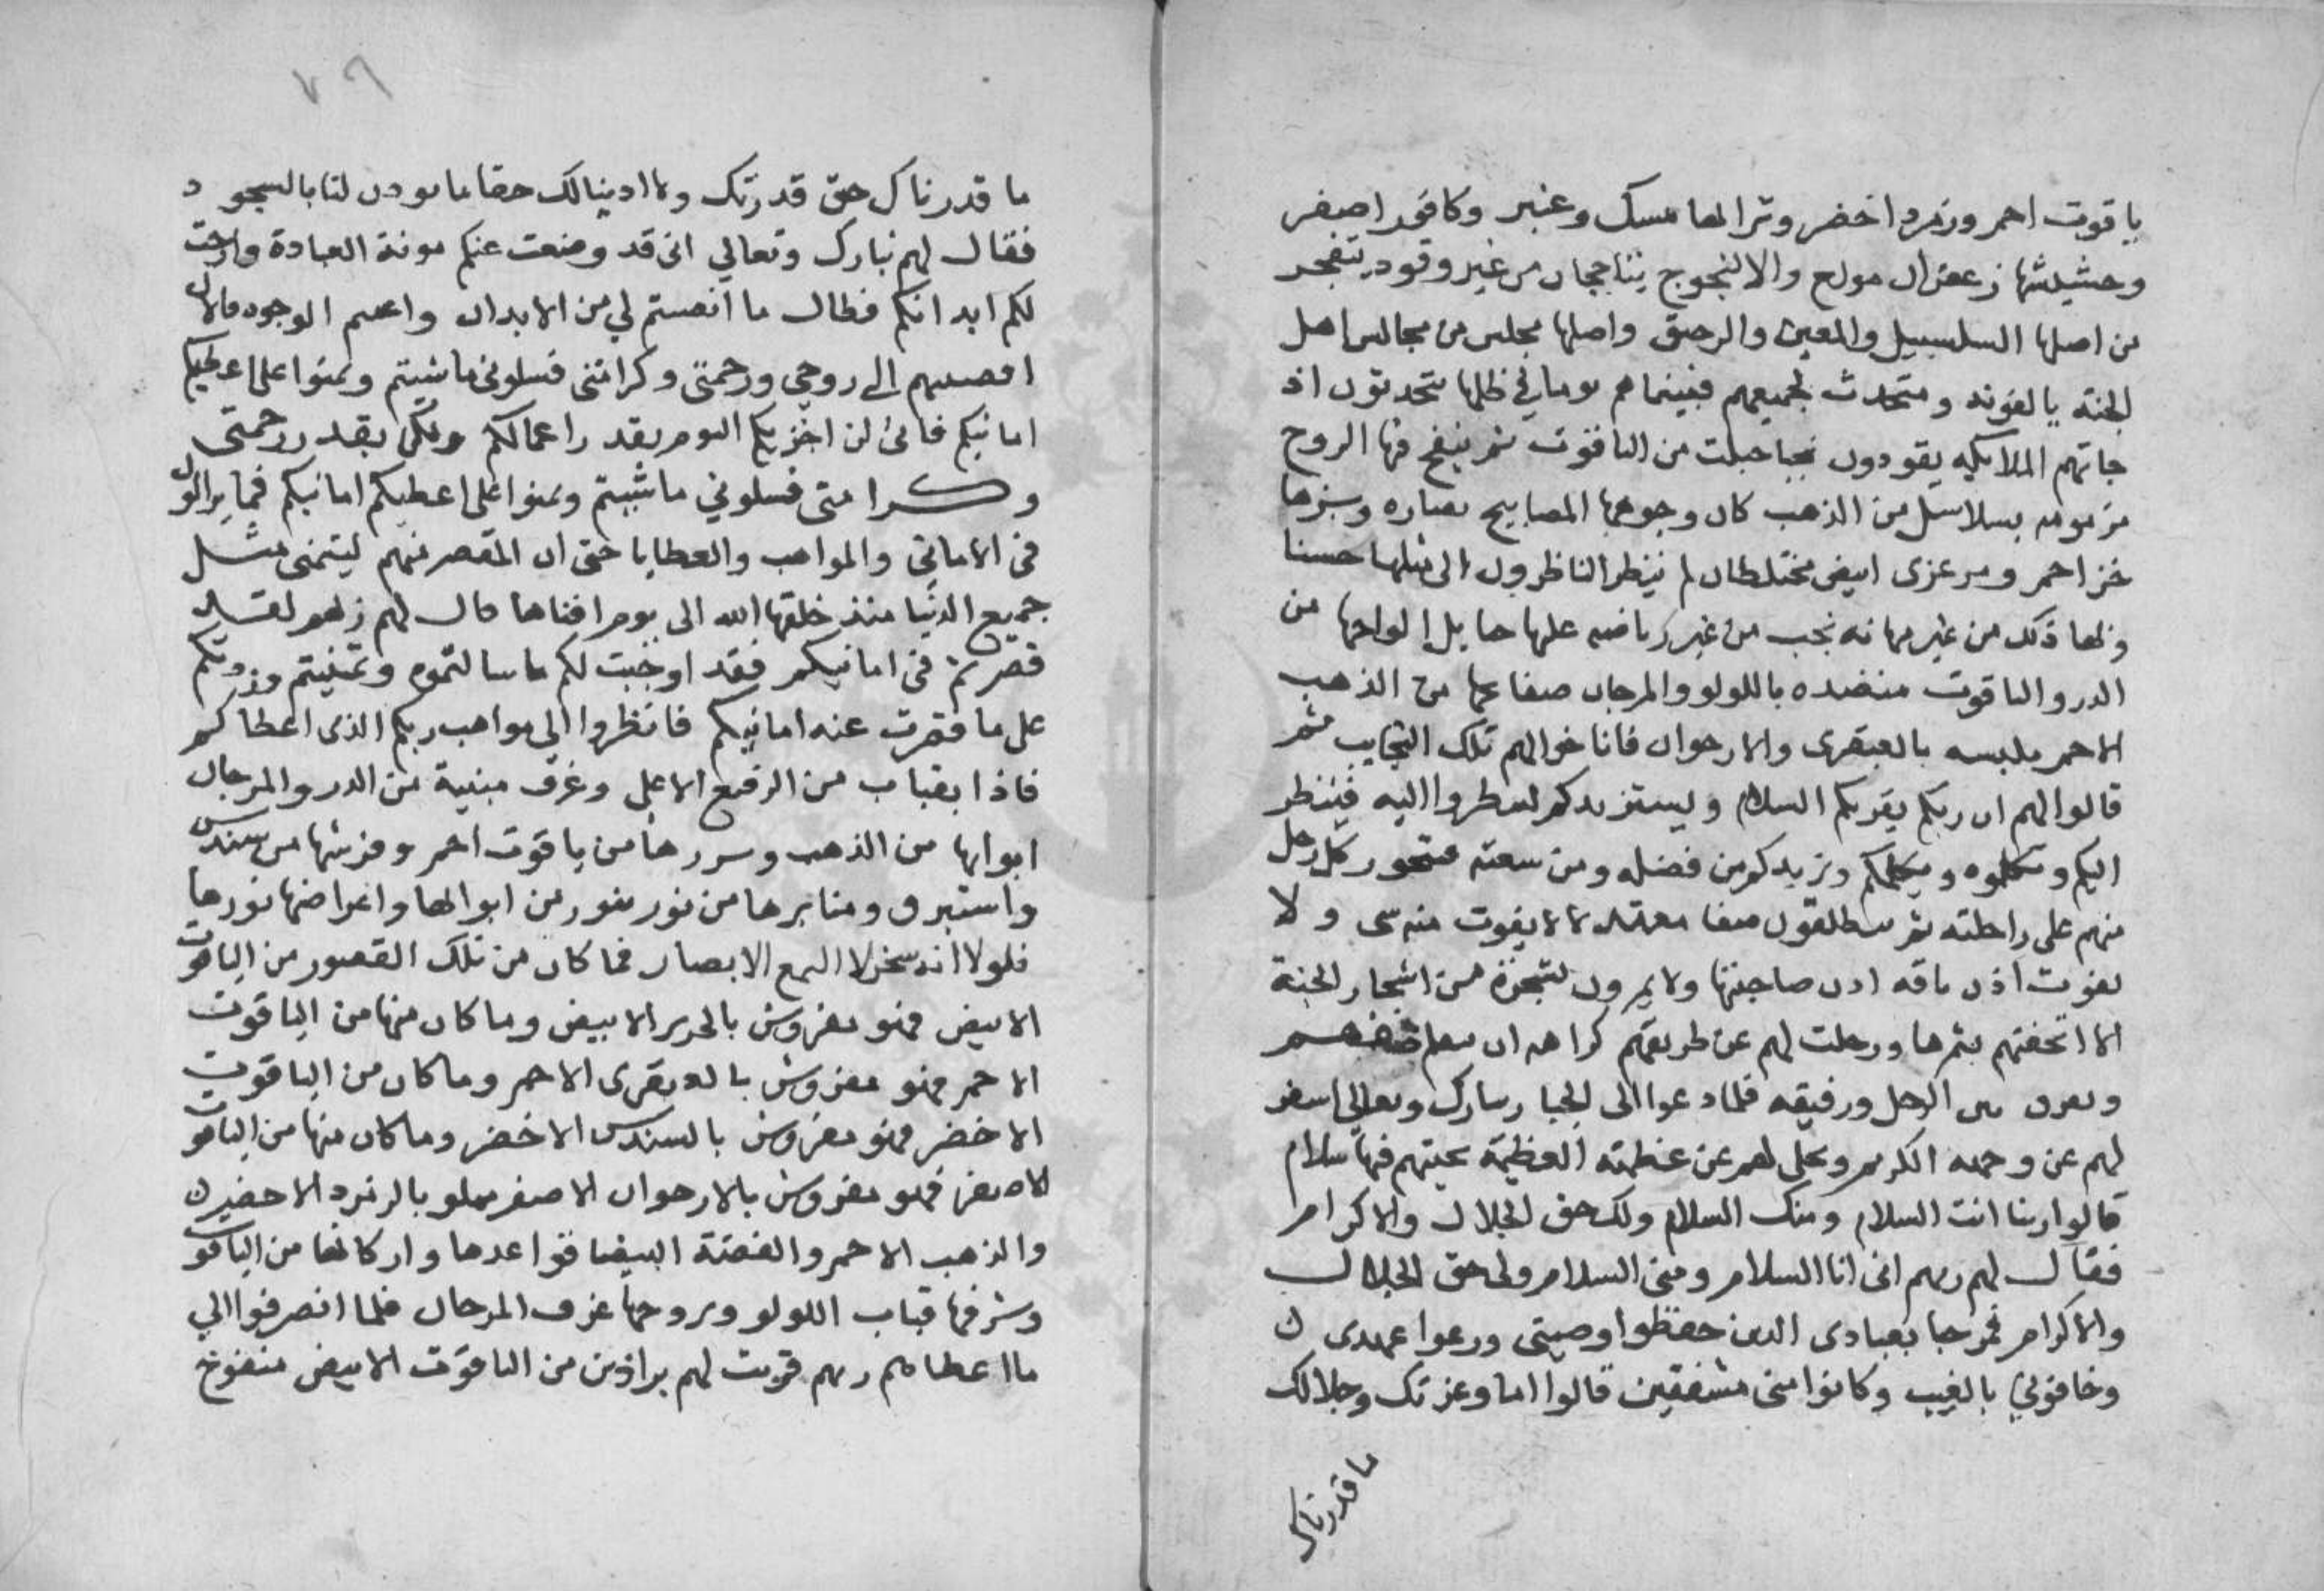 ياقوت احمر وزمرد اخضر وترابها مسك وعنبر وكافور اصفر
وحشيشها زعفران مولع والالنجوج يتاججان من غير وقود يتفجر
من اصلها السلسبيل والمعين والرحيق واصلها مجلس من مجالس اهل
الجنة يالفونه ومتحدث لجميعهم فبينما هم يوما في ظلها يتحدثون اذ
جاتهم الملايكه يقودون نجبا جبلت من الياقوت ثم ينفخ فيها الروح
مزمومه بسلاسل من الذهب كان وجوهها المصابيح نضاره وبزها
خز احمر ومرعزى ابيض مختلطان لم ينظر الناظرون الى مثلها حسنا
وبها ذلك من غير مهانه نجب من غير رياضه عليها رحايل الواحها من
الدر والياقوت منضده باللولو والمرجان صفاعها من الذهب
الاحمر ملبسه بالعبقرى والارجوان فاناخوا لهم تلك النجايب ثم
قالوا لهم ان ربكم يقريكم السلام ويستزيدكم لتنظروا اليه فينظر
اليكم وتكلموه ويكلمكم ويزيدكم من فضله ومن سعته فتحور كل رجل
منهم على راحلته ثم ينطلقون صفا معتدلا لا يفوت منه شى ولا
تفوت اذن ناقه اذن صاحبتها ولا يمرون بشجرة من اشجار الجنة
الا اتحفتهم بثمرها ورحلت لهم عن طريقهم كراهه ان يثلم صفهم
ويفرق بين الرجل ورفيقه فلما دعوا الى الجبار تبارك وتعالى اسفر
لهم عن وجهه الكريم وتجلى لهم عن عظمته العظيمة تحيتهم فيها سلام
قالوا ربنا انت السلام ومنك السلام ولك حق الجلال والاكرام
فقال لهم ربهم انى انا السلام ومنى السلام ولى حق الجلال
والاكرام فمرحبا بعبادى الذين حفظوا وصيتى ورعوا عهدى
وخافونى بالغيب وكانوا منى مشفقين قالوا اما وعزتك وجلالك
ما قدرناك
٧٩
ما قدرناك حق قدرتك وما ادينا لك حقا ما يودن لنا بالسجود
فقال لهم تبارك وتعالي انى قد وضعت عنكم مونة العبادة وارحت
لكم ابدانكم فطال ما انصبتم لي من الابدان واعنتم الوجوه فالان
افضيتم الى روحي ورحمتى وكرامتى فسلونى ما شيتم وتمنوا على اعطيكم
امانيكم فانى لن اجزيكم اليوم بقدر اعمالكم ولكن بقدر رحمتى
وكرامتى فسلوني ما شيتم وتمنوا على اعطيكم امانيكم فما يزالون
فى الاماني والمواهب والعطايا حتى ان المقصر منهم ليتمنى مثل
جميع الدنيا منذ خلقها الله الى يوم افناها قال لهم ربهم لقد
قصرتم فى امانيكم فقد اوجبت لكم ما سالتموه وتمنيتم وزدتكم
على ما قصرت عنه امانيكم فانظروا الي مواهب ربكم الذى اعطاكم
فاذا بقباب من الرفيع الاعلى وغرف مبنية من الدر والمرجان
ابوابها من الذهب وسررها من ياقوت احمر وفرشها من سندس
واستبرق ومنابرها من نور يثور من ابوابها واعراضها نورها
فلولا انه سخر لا لتمع الابصار فما كان من تلك القصور من الياقوت
الابيض فهو مفروش بالحرير الابيض وما كان منها من الياقوت
الاحمر فهو مفروش بالعبقرى الاحمر وما كان من الياقوت
الاخضر فهو مفروش بالسندس الاخضر وما كان منها من الياقوت
الاصفر فهو مفروش بالارجوان الاصفر مملو بالزمرد الاخضر
والذهب الاحمر والفضة البيضا قواعدها واركانها من الياقوت
وشرفها قباب اللولو وبروجها غرف المرجان فلما انصرفوا الي
ما اعطاهم ربهم قربت لهم براذين من الياقوت الابيض منفوخ